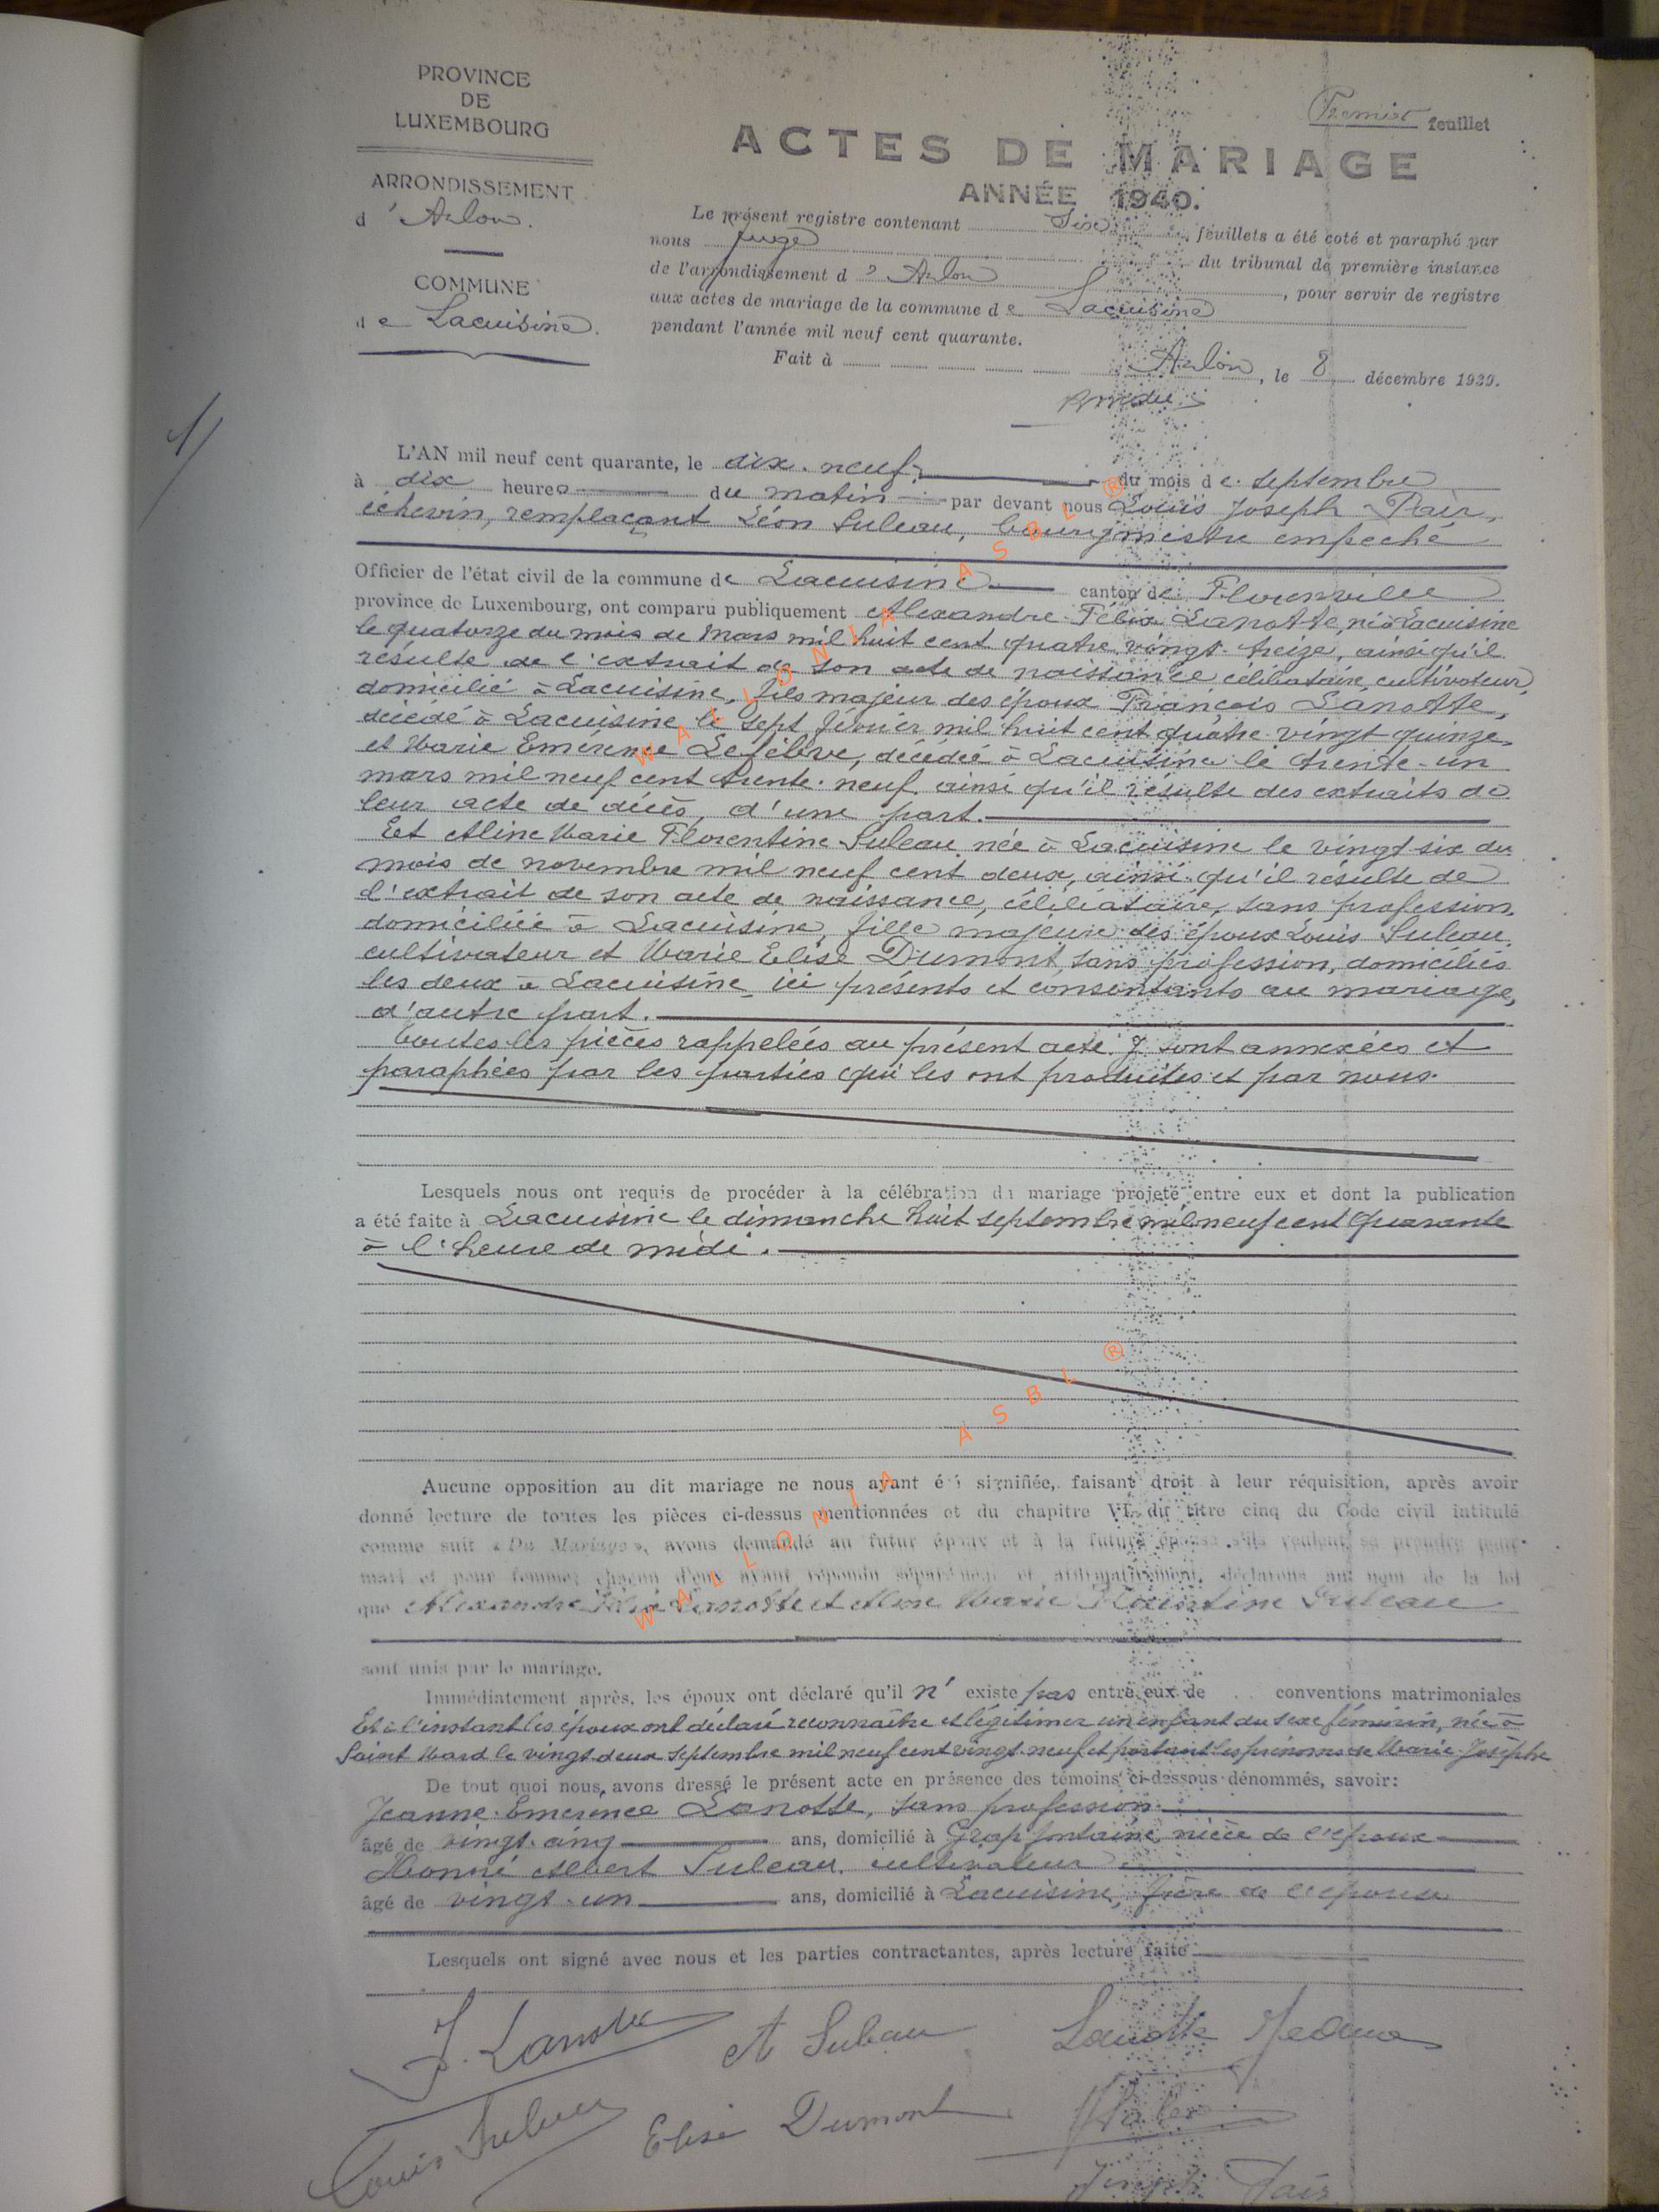 PROVINCE
DE
LUXEMBOURG
ARRONDISSEMENT
d'Arlon.
COMMUNE
de Lacuisine.
Premier feuillet
ACTES DE MARIAGE
ANNÉE 1940.
Le présent registre contenant Six feuillets a été coté et paraphé par
nous juge du tribunal de première instance
de l'arrondissement d'Arlon, pour servir de registre
aux actes de mariage de la commune de Lacuisine
pendant l'année mil neuf cent quarante.
Fait à Arlon, le 8 décembre 1939.
1/
L'AN mil neuf cent quarante, le dix-neuf du mois de septembre
à dix heures du matin par devant nous Louis Joseph Pair,
échevin, remplaçant Léon Suleau, bourgmestre empêché
Officier de l'état civil de la commune de Lacuisine canton de Florenville
province de Luxembourg, ont comparu publiquement Alexandre Félix Lanotte, né à Lacuisine
le quatorze du mois de Mars mil huit cent quatre vingt-treize, ainsi qu'il
résulte de l'extrait de son acte de naissance célibataire, cultivateur,
domicilié à Lacuisine, fils majeur des époux François Lanotte,
décédé à Lacuisine le sept février mil huit cent quatre vingt quinze,
et Marie Emérence Lefèbvre, décédée à Lacuisine le trente-un
mars mil neuf cent trente-neuf ainsi qu'il résulte des extraits de
leur acte de décès, d'une part.
Et Aline Marie Florentine Suleau née à Lacuisine le vingt-six du
mois de novembre mil neuf cent deux, ainsi qu'il résulte de
l'extrait de son acte de naissance, célibataire, sans profession,
domiciliée à Lacuisine, fille majeure des époux Louis Suleau,
cultivateur et Marie Elise Dumont, sans profession, domiciliés
les deux à Lacuisine ici présents et consentants au mariage,
d'autre part.
Toutes les pièces rappelées au présent acte y sont annexées et
paraphées par les parties qui les ont produites et par nous.
Lesquels nous ont requis de procéder à la célébration du mariage projeté entre eux et dont la publication
a été faite à Lacuisine le dimanche huit septembre mil neuf cent quarante
à l'heure de midi.
Aucune opposition au dit mariage ne nous ayant été signifiée, faisant droit à leur réquisition, après avoir
donné lecture de toutes les pièces ci-dessus mentionnées et du chapitre VI du titre cinq du Code civil intitulé
comme suit « Du Mariage », avons demandé au futur époux et à la future épouse s'ils veulent se prendre pour
mari et pour femme; chacun d'eux ayant répondu séparément et affirmativement, déclarons au nom de la loi
que Alexandre Félix Lanotte et Aline Marie Florentine Suleau
sont unis par le mariage.
Immédiatement après, les époux ont déclaré qu'il n'existe pas entre eux de conventions matrimoniales
Et à l'instant les époux ont déclaré reconnaître et légitimer un enfant du sexe féminin, née à
Saint Mard le vingt-deux septembre mil neuf cent vingt-neuf et portant les prénoms de Marie-Josèphe
De tout quoi nous avons dressé le présent acte en présence des témoins ci-dessous dénommés, savoir:
Jeanne Emerence Lanotte, sans profession
âgé de vingt-cinq ans, domicilié à Grapfontaine, nièce de l'époux
Honoré Albert Suleau, cultivateur
âgé de vingt-un ans, domicilié à Lacuisine, frère de l'épouse
Lesquels ont signé avec nous et les parties contractantes, après lecture faite
F. Lanotte A Suleau Lanotte Jeanne
Louis Suleau Elise Dumont
Joseph Pair
WALLONIA ASBL ®
WALLONIA ASBL ®